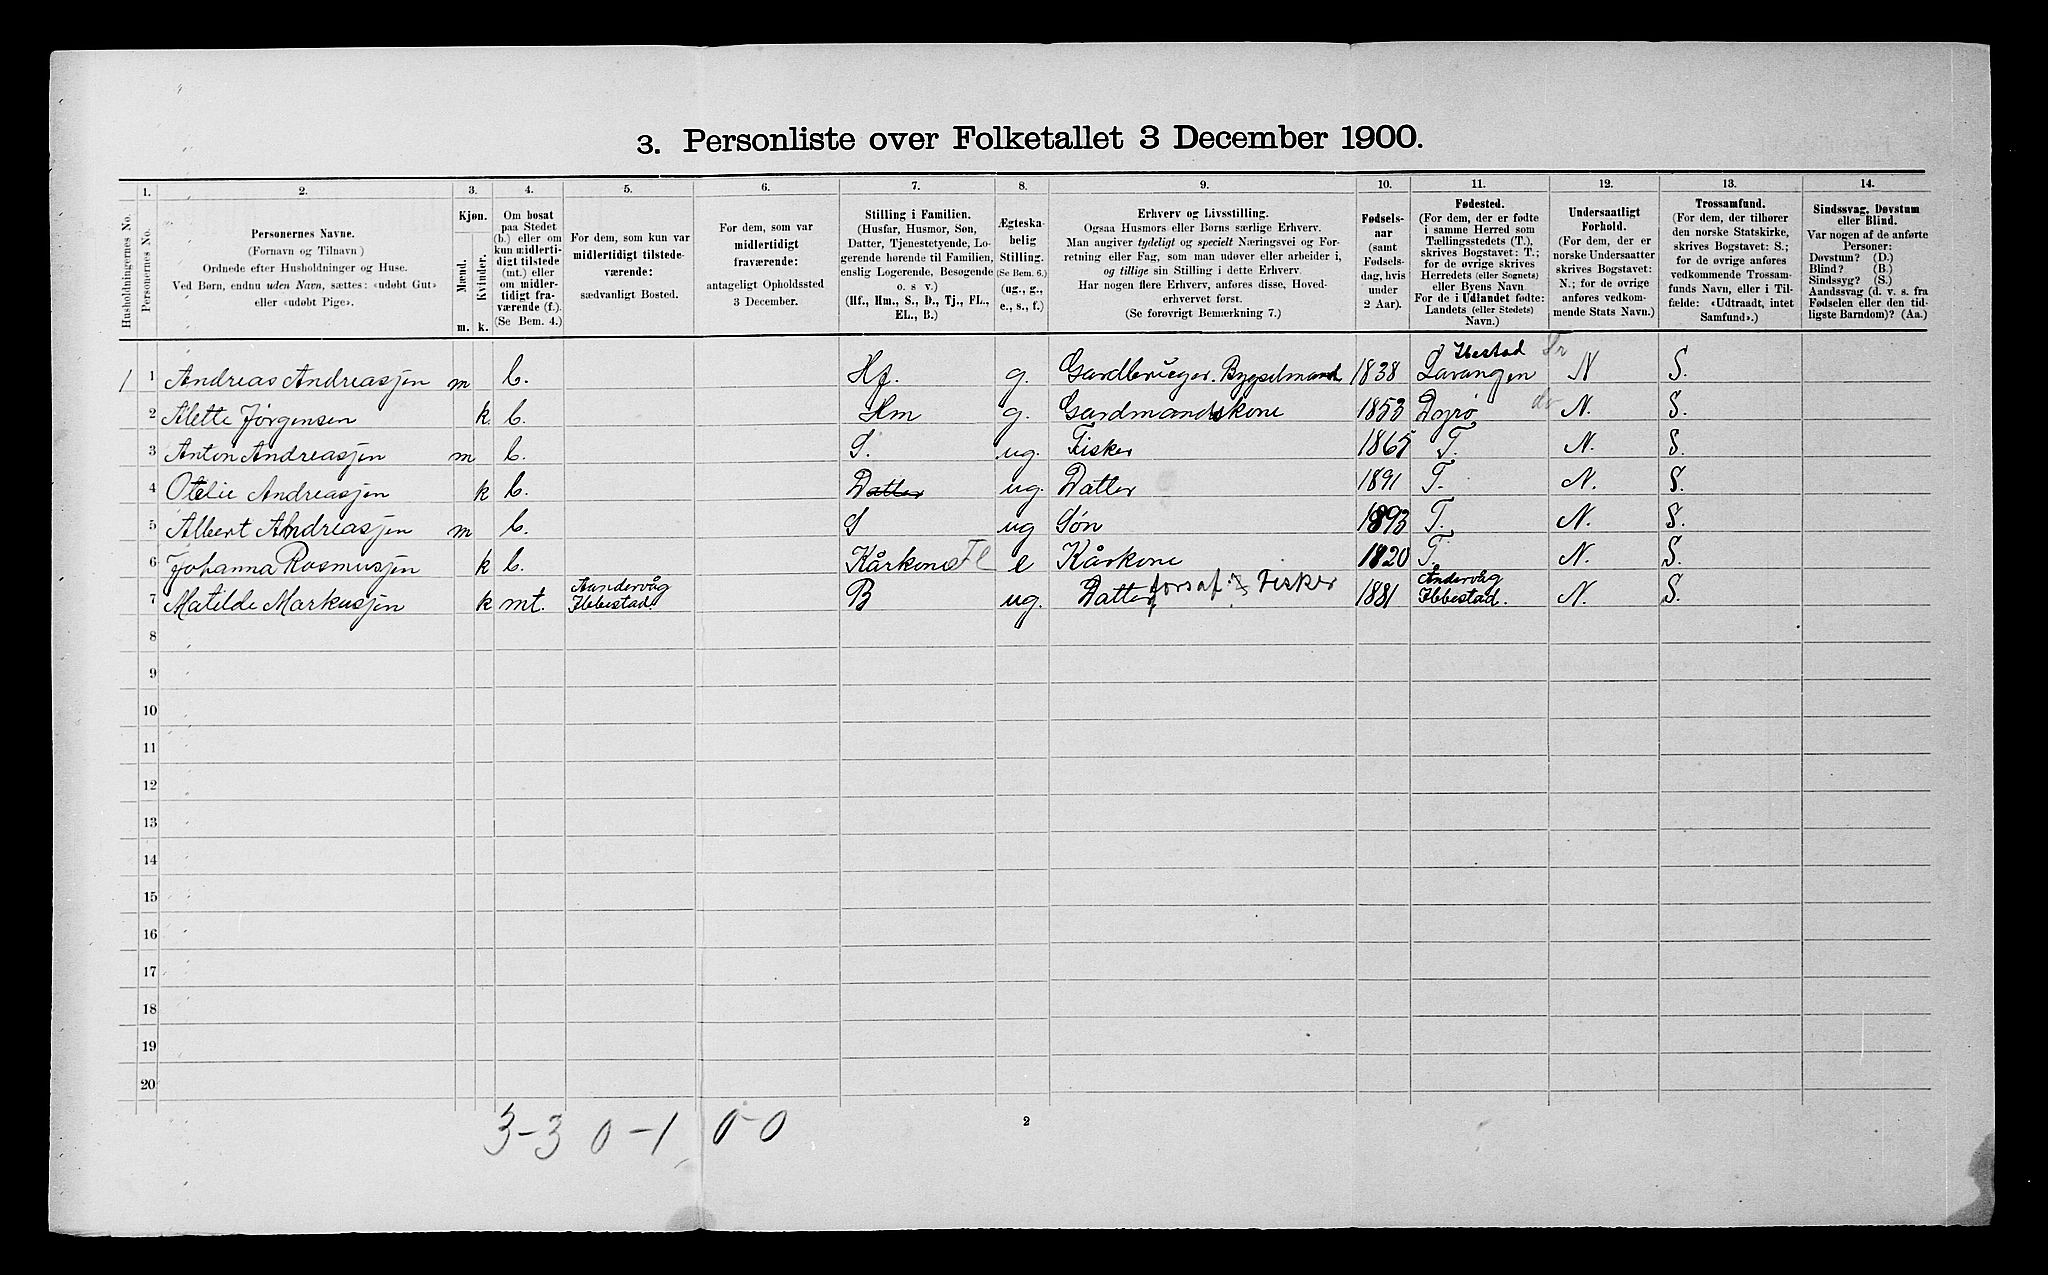 3. Personliste over Folketallet 3 December 1900.
1. 2. 3. 4. 5. 6. 7. 8. 9. 10. 11. 12. 13. 14.
Husholdningernes No.
Personernes No.
Personernes Navne.
(Fornavn og Tilnavn)
Ordnede efter Husholdninger og Huse.
Ved Børn, endnu uden Navn, sættes: «udøbt Gut»
eller «udøbt Pige».
Kjøn.
Mænd.
Kvinder.
m. k.
Om bosat
paa Stedet
(b.) eller om
kun midlerti-
digt tilstede
(mt.) eller
om midler-
tidigt fra-
værende (f.).
(Se Bem. 4.)
For dem, som kun var
midlertidigt tilstede-
værende:
sædvanligt Bosted.
For dem, som var
midlertidigt
fraværende:
antageligt Opholdssted
3 December.
Stilling i Familien.
(Husfar, Husmor, Søn,
Datter, Tjenestetyende, Lo-
gerende hørende til Familien,
enslig Logerende, Besøgende
o. s v.)
(Hf., Hm., S., D., Tj., FL.,
EL., B.)
Ægteska-
belig
Stilling.
(Se Bem. 6.)
(ug., g.,
e., s., f.)
Erhverv og Livsstilling.
Ogsaa Husmors eller Børns særlige Erhverv.
Man angiver tydeligt og specielt Næringsvei og For-
retning eller Fag, som man udøver eller arbeider i,
og tillige sin Stilling i dette Erhverv.
Har nogen flere Erhverv, anføres disse, Hoved-
erhvervet først.
(Se forøvrigt Bemærkning 7.)
Fødsels-
aar
(samt
Fødsels-
dag, hvis
under
2 Aar).
Fødested.
(For dem, der er fødte
i samme Herred som
Tællingsstedets (T.),
skrives Bogstavet: T.;
for de øvrige skrives
Herredets (eller Sognets)
eller Byens Navn
For de i Udlandet fødte:
Landets (eller Stedets)
Navn.)
Undersaatligt
Forhold.
(For dem, der er
norske Undersaatter
skrives Bogstavet:
N.; for de øvrige
anføres vedkom-
mende Stats Navn.)
Trossamfund.
(For dem, der tilhører
den norske Statskirke,
skrives Bogstavet: S.;
for de øvrige anføres
vedkommende Trossam-
funds Navn, eller i Til-
fælde: «Udtraadt, intet
Samfund».)
Sindssvag, Døvstum
eller Blind.
Var nogen af de anførte
Personer:
Døvstum? (D.)
Blind? (B.)
Sindssyg? (S.)
Aandssvag (d. v. s. fra
Fødselen eller den tid-
ligste Barndom)? (Aa.)
Ibestad
1 1 Andreas Andreasjen m b. Hf. g. Gardbruger. Bygselmand 1838 Lavangen N S.
2 Alette Jørgensen k. b. Hm g. Gardmandskone 1853 Dyrø N. S.
3 Anton Andreasjen m b. S. ug. Fisker 1865 T. N. S.
4 Otelie Andreasjen k b. Datter ug. Datter 1891 T. N. S.
5 Albert Andreasjen m b. S ug Søn 1893 T. N. S.
6 Johanna Rasmusjen k b. Kårkone Fl e Kårkone 1820 T. N. S.
7 Matilde Markusjen k mt. Aandervåg Ibbestad B ug. Datter, forsøf. Fisker 1881 Åndervåg Ibbestad. N. S.
8
9
10
11
12
13
14
15
16
17
18
19
20
3-3 0-1 0-0
2